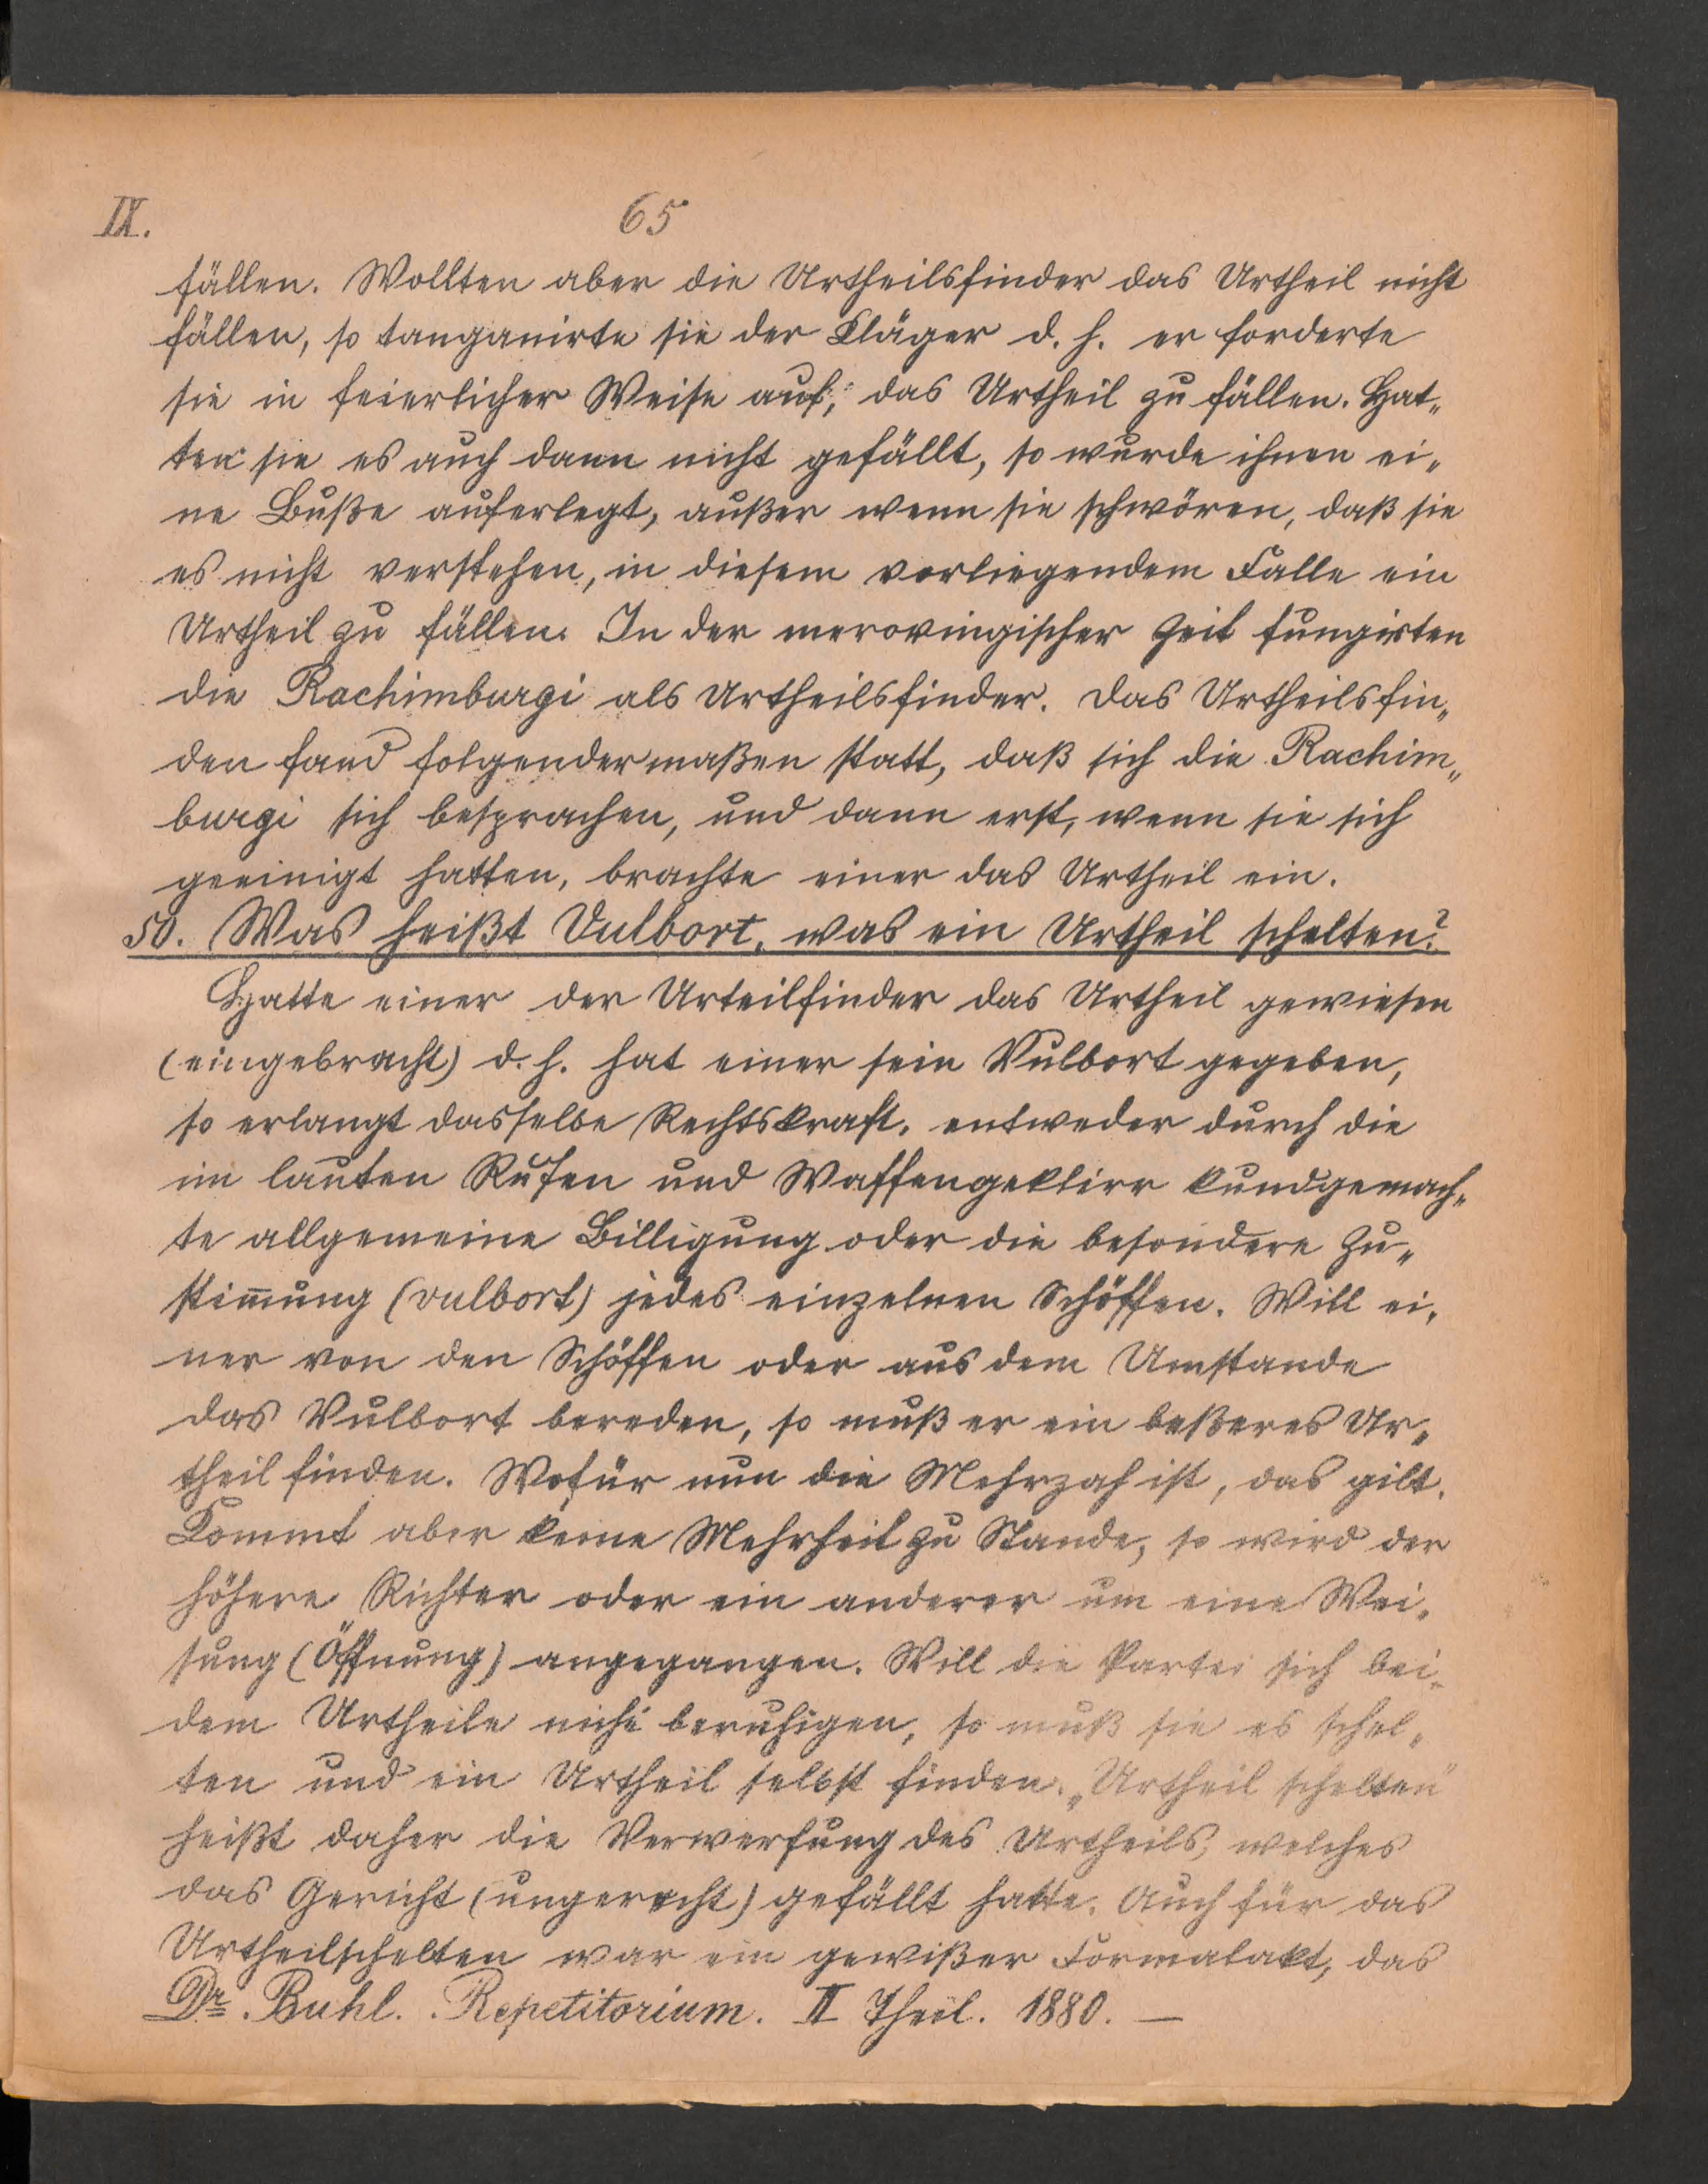 IX.
65
fällen. Wollten aber die Urtheilsfinder das Urtheil nicht
fällen, so tanganirte sie der Kläger d. h. er forderte
sie in feierlicher Weise auf, das Urtheil zu fällen. Hat„
ten sie es auch dann nicht gefällt, so wurde ihnen ei„
ne Buße auferlegt, außer wenn sie schwören, daß sie
es nicht verstehen, in diesem vorliegendem Falle ein
Urtheil zu fällen. In der merovingischer Zeit fungirten
die Rachimburgi als Urtheilsfinder. Das Urtheilsfin„
den fand folgendermaßen statt, daß sich die Rachim„
burgi sich besprachen, und dann erst, wenn sie sich
geeinigt hatten, brachte einer das Urtheil ein.
50. Was heißt Vulbort, was ein Urtheil schelten?
Hatte einer der Urteilfinder das Urtheil gewiesen
(eingebracht) d. h. hat einer sein Vulbort gegeben,
so erlangt dasselbe Rechtskraft, entweder durch die
im lauten Rufen und Waffengeklirr kundgemach„
te allgemeine Billigung oder die besondere Zu„
stim̅ung (vulbort) jedes einzelnen Schöffen. Will ei„
ner von den Schöffen oder aus dem Umstande
das Vulbort bereden, so muß er ein beßeres Ur„
theil finden. Wofür nun die Mehrzah ist, das gilt.
Kommt aber keine Mehrheit zu Stande, so wird der
höhere Richter oder ein anderer um eine Wei„
sung (Öffnung) angegangen. Will die Partei sich bei
dem Urtheile nicht beruhigen, so muß sie es schel„
ten und ein Urtheil selbst finden. „Urtheil schelten"
heißt daher die Verwerfung des Urtheils, welches
das Gericht (ungerecht) gefällt hatte. Auch für das
Urtheilschelten war ein gewißer Formalakt, das
Dr. Buhl. Repetitorium. II Theil. 1880. —